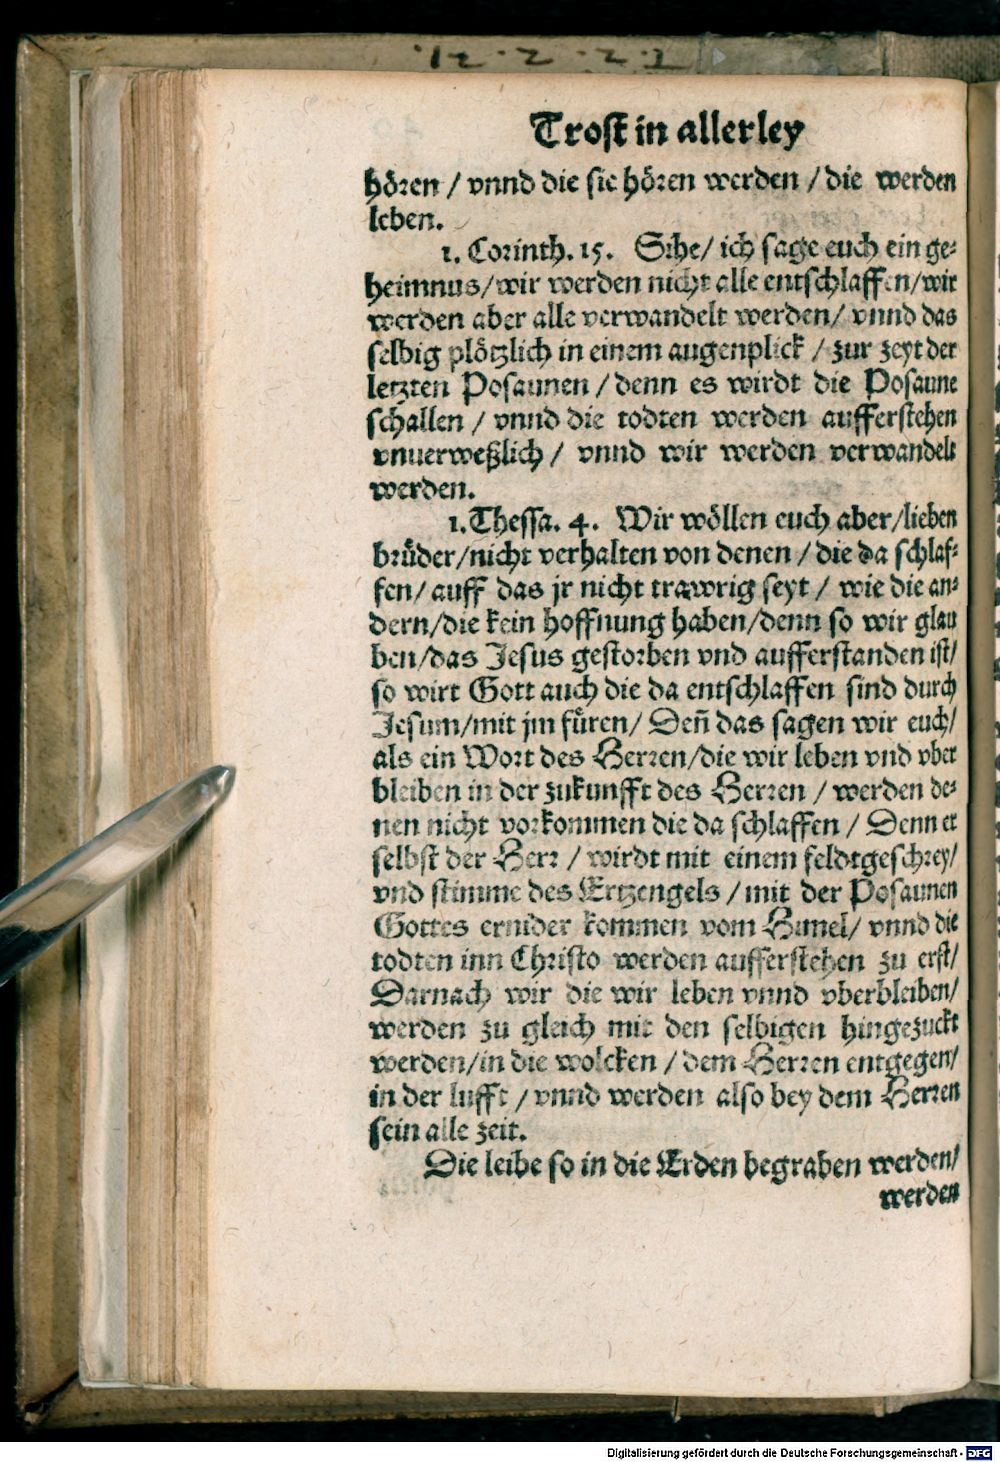 Trost in allerley
hören / vnnd die sie hören werden / die werden
leben.
1. Corinth. 15. Sihe / ich sage euch ein ge⸗
heimnus / wir werden nicht alle entschlaffen / wir
werden aber alle verwandelt werden / vnnd das
selbig plötzlich in einem augenplick / zur zeyt der
letzten Posaunen / denn es wirdt die Posaune
schallen / vnnd die todten werden aufferstehen
vnuerweßlich / vnnd wir werden verwandelt
werden.
1. Thessa. 4. Wir wöllen euch aber / lieben
brüder / nicht verhalten von denen / die da schlaf⸗
fen / auff das jr nicht trawrig seyt / wie die an⸗
dern / die kein hoffnung haben / denn so wir glau
ben / das Jesus gestorben vnd aufferstanden ist /
so wirt Gott auch die da entschlaffen sind durch
Jesum / mit jm füren / Deñ das sagen wir euch /
als ein Wort des Herren / die wir leben vnd vber
bleiben in der zukunfft des Herren / werden de⸗
nen nicht vorkommen die da schlaffen / Denn er
selbst der Herr / wirdt mit einem feldtgeschrey /
vnd stimme des Ertzengels / mit der Posaunen
Gottes ernider kommen vom Himel / vnnd die
todten inn Christo werden aufferstehen zu erst /
Darnach wir die wir leben vnnd vberbleiben /
werden zu gleich mit den selbigen hingezuckt
werden / in die wolcken / dem Herren entgegen /
in der lufft / vnnd werden also bey dem Herren
sein alle zeit.
Die leibe so in die Erden begraben werden /
werden
Digitalisierung gefördert durch die Deutsche Forschungsgemeinschaft - DFG